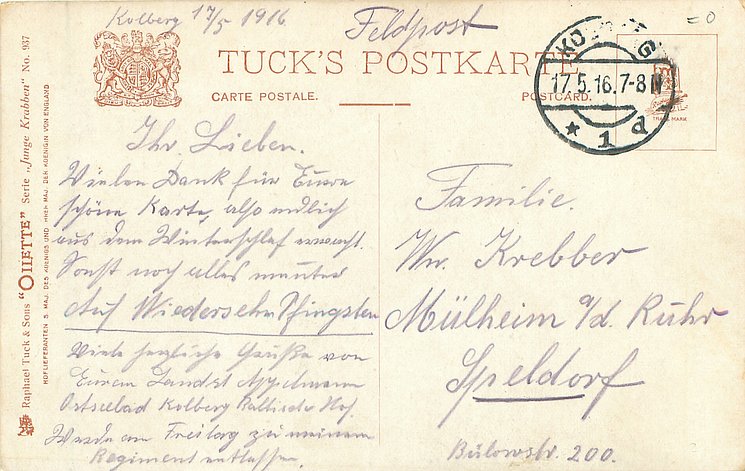 Kolberg 17/5 1916
Feldpost
TUCK'S POSTKARTE
CARTE POSTALE.
POSTCARD.
KOLBERG
17.5.16.7-8N
* 1 d
TRADE MARK
Ihr Lieben.
Vielen Dank für Eure
schöne Karte, also endlich
aus dem Winterschlaf erwacht.
Sonst noch alles munter
Auf Wiedersehn Pfingsten
Viele herzliche Grüße von
Eurem Landst. Appelmann
Ostseebad Kolberg Baltischer Hof.
Werde am Freitag zu meinem
Regiment entlassen.
Familie.
Wn. Krebber
Mülheim a/d. Ruhr
Speldorf
Bülowstr. 200.
Raphael Tuck & Sons "OILETTE" Serie „Junge Krabben" No. 937
HOFLIEFERANTEN S. MAJ. DES KOENIGS UND IHRER MAJ. DER KOENIGIN VON ENGLAND